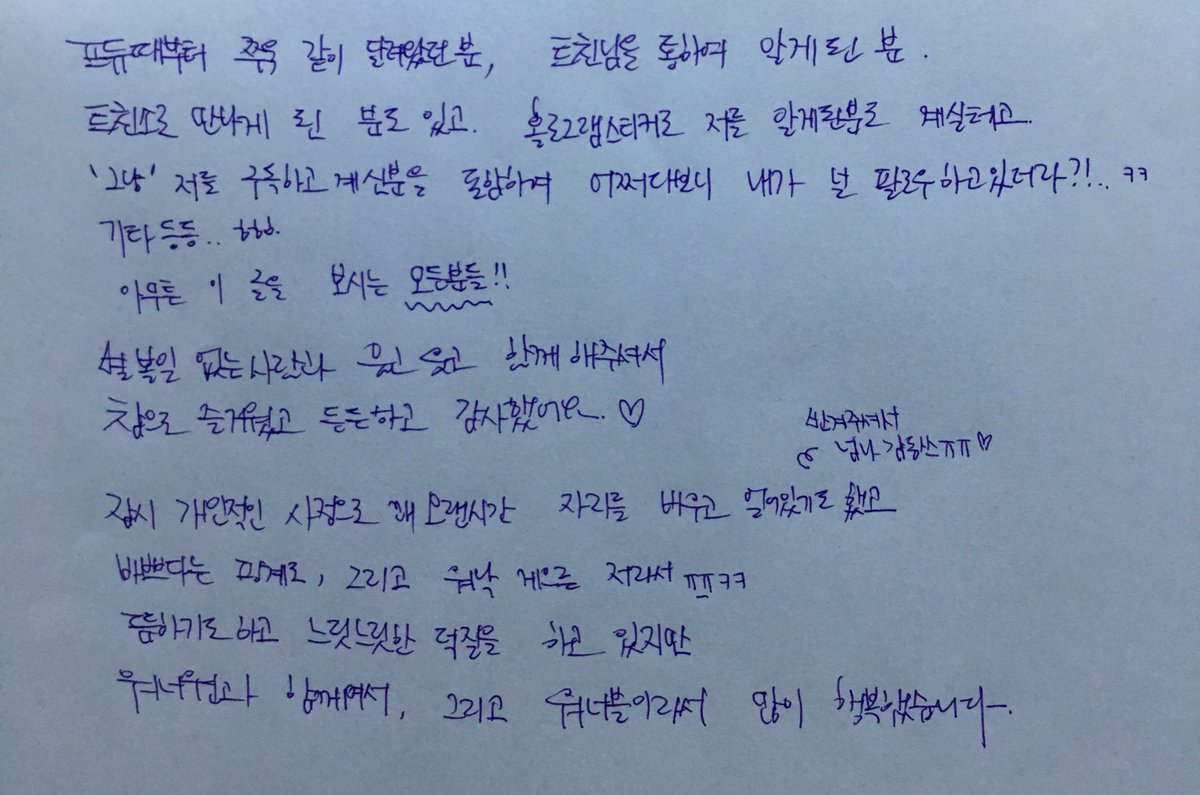 프듀때부터 쭈욱 같이 달려왔던 분, 트친님을 통하여 알게 된 분.
트친소로 만나게 된 분도 있고. 홀로그램스티커로 저를 알게된분도 계실테고.
'그냥' 저를 구독하고 계신분을 포함하여 어쩌다보니 내가 널 팔로우하고있더라?!.. ㅋㅋ
기타 등등.. ㅎㅎ.
아무튼 이 글을 보시는 모든분들!!
별 볼일 없는 사람과 울고 웃고 함께 해주셔서
참으로 즐거웠고 든든하고 감사했어요. ♡
반겨주셔서
넘나 감동쓰ㅠㅠ♡
잠시 개인적인 사정으로 꽤 오랜시간 자리를 비우고 멀어있기도 했고
바쁘다는 핑계로, 그리고 워낙 게으른 저라서 ㅠㅠㅋㅋ
뜸하기도하고 느릿느릿한 덕질을 하고 있지만
워너원과 함께여서, 그리고 워너블이라서 많이 행복했습니다-.